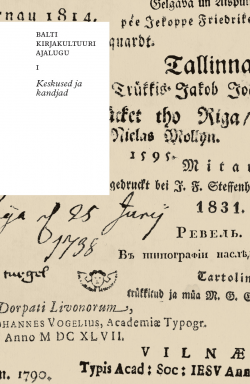 BALTI
KIRJAKULTUURI
AJALUGU
I
Keskused ja
kandjad
nau 1814.
Gelgava un Aispu
pée Jekoppe Friedrike
quardt.
Tallinna
Trükkis Jakob Joh
ucket tho Riga/
Niclas Mollyn.
1595.
Mitau
gedruckt bei J. F. Steffenh
1831.
25 Junij
1738
РЕВЕЛЬ.
Въ типографіи наслѣ
Cartolin
trükkitud ja müa M. G. G
Dorpati Livonorum,
OHANNES VOGELIUS, Academiæ Typogr.
Anno M DC XLVII.
VILNÆ
n. 1790.
Typis Acad: Soc: IESV Ann